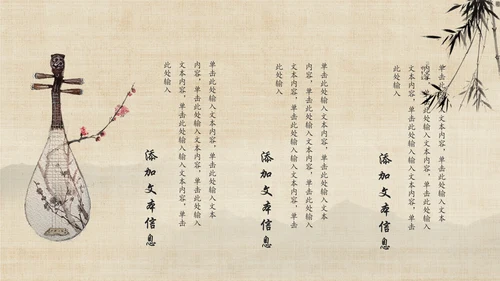 单击此处输入文本内容，单击此处输入文本
内容，单击此处输入文本内容，单击此处输入
文本内容，单击此处输入输入文本内容，单击
此处输入
添加文本信息
单击此处输入文本内容，单击此处输入文本
内容，单击此处输入文本内容，单击此处输入
文本内容，单击此处输入输入文本内容，单击
此处输入
添加文本信息
单击此处输入文本内容，单击此处输入文本
内容，单击此处输入文本内容，单击此处输入
文本内容，单击此处输入输入文本内容，单击
此处输入
添加文本信息